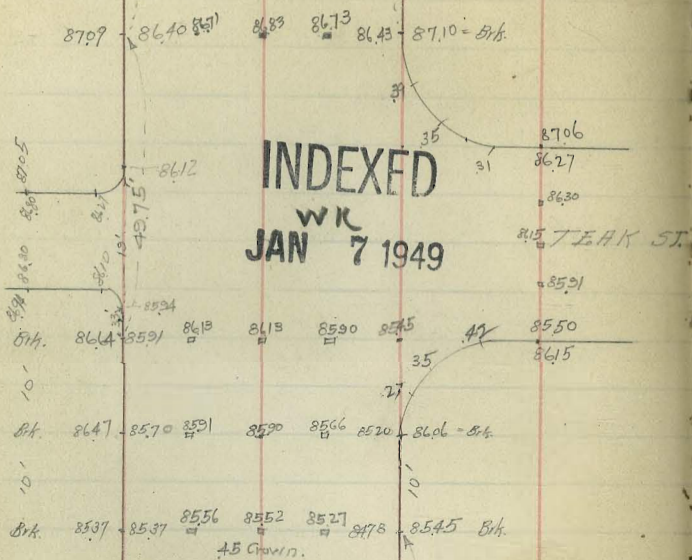 8709 8640 8671 8683 8673 8643 87.10 = Brk.
39
35
31
8706
8627
8705
8612
INDEXED
WR
JAN 7 1949
49.75'
8630
8615 TEAK ST.
19'
8630
8610
8591
8594
Brk. 8664 8591 8613 8613 8590 8545 .42 8550
35
8615
10'
.27
Brk. 8647 8570 8591 8590 8566 8520 8606 = Brk.
10'
10'
Brk. 8537 8537 8556 8552 8527 8478 8545 Brk.
.45 Crown.